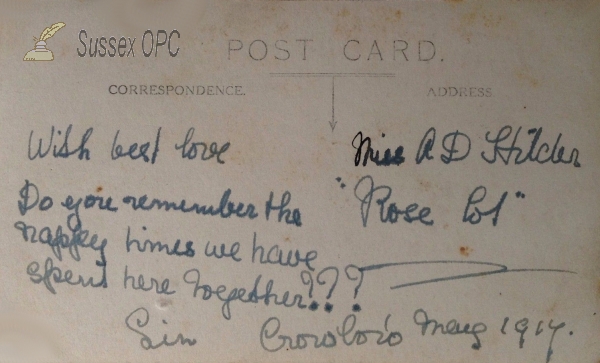 Sussex OPC
POST CARD.
CORRESPONDENCE.
ADDRESS
With best love
Miss A D Hilder
Do you remember the
"Rose Cot"
happy times we have
spent here together!??
Crowboro May 1917.